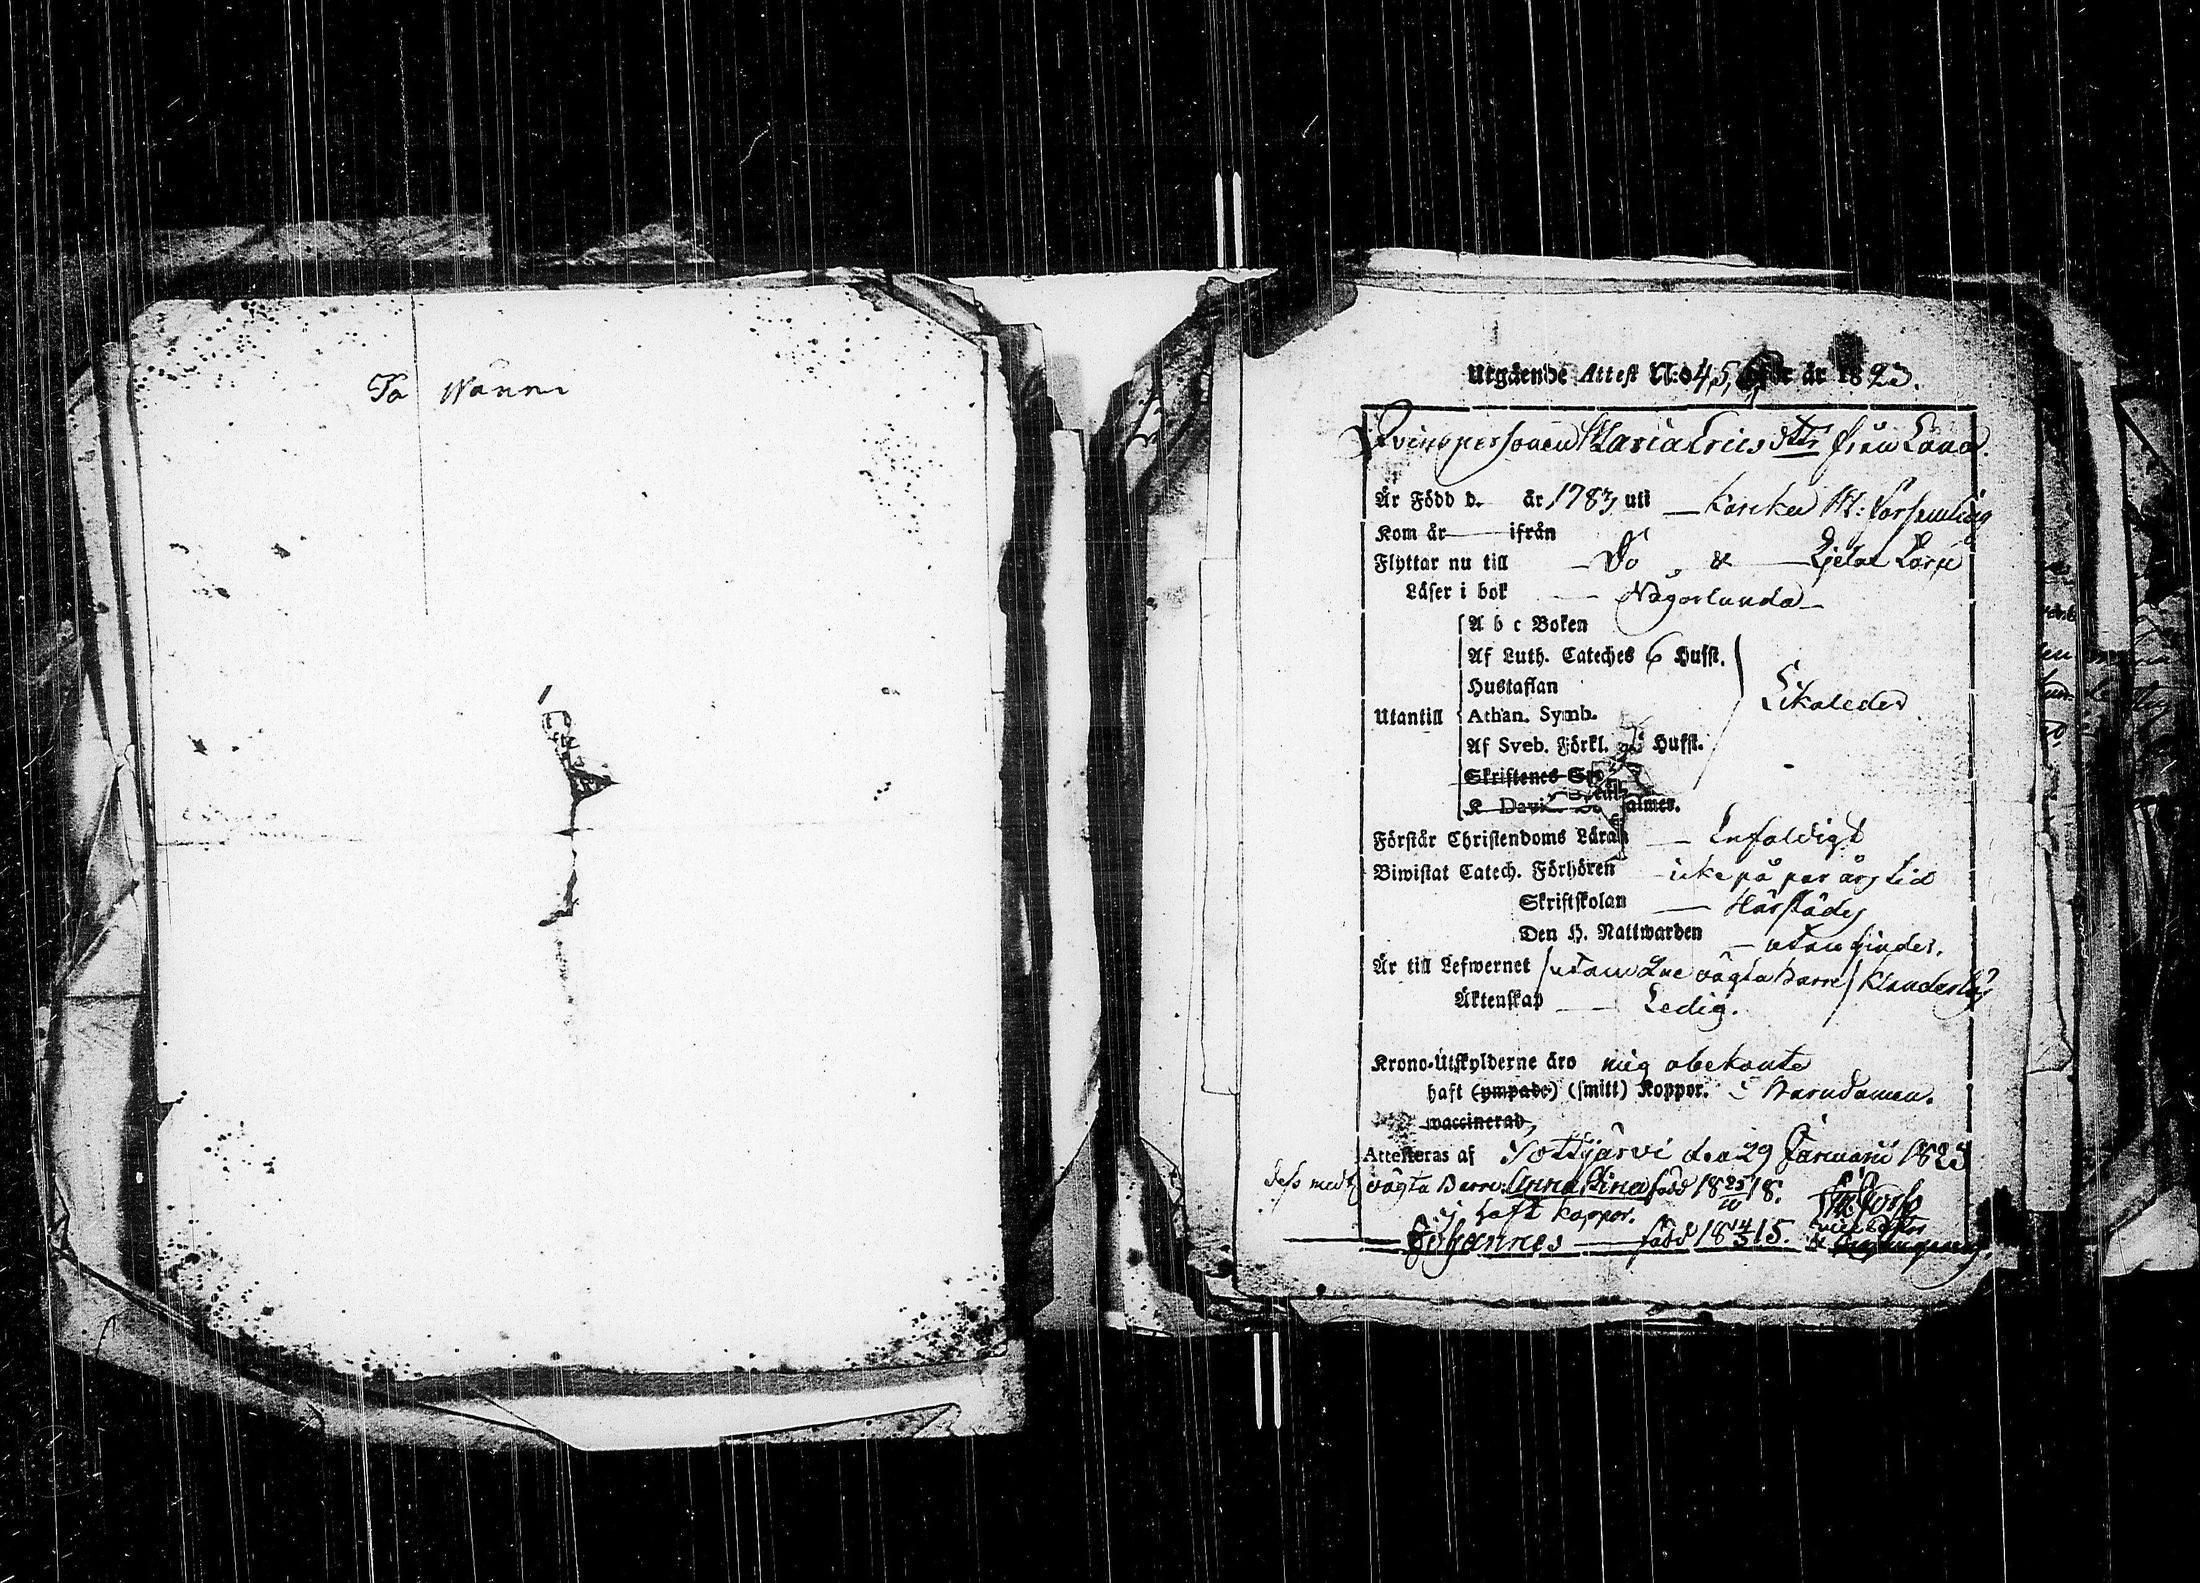 To Wänni
Utgående Attest N:o 45, för år 1823.
Qvinspersonen Maria Ericsdttr från
Är Född d. år 1783, uti Församling
Kom år — ifrån
Flyttar nu till — Do &
Läser i bok — Någorlunda —
Utantill
A b c Boken
Af Luth. Cateches 6 Hufst.
Hustaflan
Athan. Symb.
Likaledes
Af Sveb. Förkl. Hufst.
Skriftenes
K Davi almer.
Förstår Christendoms Lära — Enfaldigt
Biwistat Catech. Förhören icke på par års tid
Skriftskolan — Härstädes
Den H. Nattwarden — utan hinder.
Är till Lefwernet utan oägta Barn klanderlös
Äktenskap — Ledig.
Krono-Utskylderne äro mig obekante
haft (ympade) (smitt) Koppor. i Barndomen.
waccinerad,
Attesteras af Sottijärvi den 29 Januarii 1823
dess medf. oägta Barn: Anna Stina född 18 25/10 18.
haft koppor.
Johannes — född 18 14/5 15.